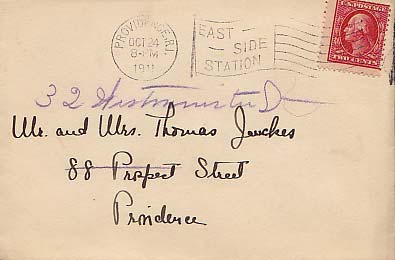 PROVIDENCE, R.I.
OCT 24
8-PM
1911
EAST
SIDE
STATION
U.S. POSTAGE
TWO CENTS
32 Westminster St
Mr. and Mrs. Thomas Jenckes
88 Prospect Street
Providence